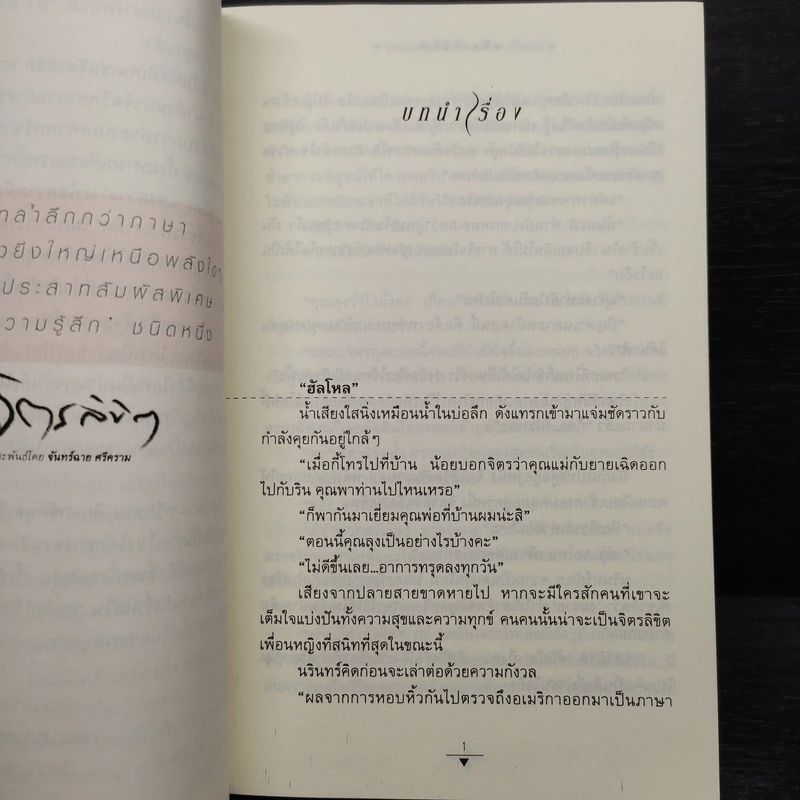 ล้ำลึกกว่าภาษา
ยิ่งใหญ่เหนือพลังใดๆ
ประสาทสัมผัสพิเศษ
ความรู้สึก' ชนิดหนึ่ง
จิตรลิขิต
จันทร์ฉาย ศรีคราม
บทนำเรื่อง
“ฮัลโหล”
น้ำเสียงใสนิ่งเหมือนน้ำในบ่อลึก ดังแทรกเข้ามาแจ่มชัดราวกับ
กำลังคุยกันอยู่ใกล้ๆ
“เมื่อกี้โทรไปที่บ้าน น้อยบอกจิตรว่าคุณแม่กับยายเฉิดออก
ไปกับริน คุณพาท่านไปไหนเหรอ”
“ก็พากันมาเยี่ยมคุณพ่อที่บ้านผมน่ะสิ”
“ตอนนี้คุณลุงเป็นอย่างไรบ้างคะ”
“ไม่ดีขึ้นเลย...อาการทรุดลงทุกวัน”
เสียงจากปลายสายขาดหายไป หากจะมีใครสักคนที่เขาจะ
เต็มใจแบ่งปันทั้งความสุขและความทุกข์ คนคนนั้นน่าจะเป็นจิตรลิขิต
เพื่อนหญิงที่สนิทที่สุดในขณะนี้
นรินทร์คิดก่อนจะเล่าต่อด้วยความกังวล
“ผลจากการหอบหิ้วกันไปตรวจถึงอเมริกาออกมาเป็นภาษา
1